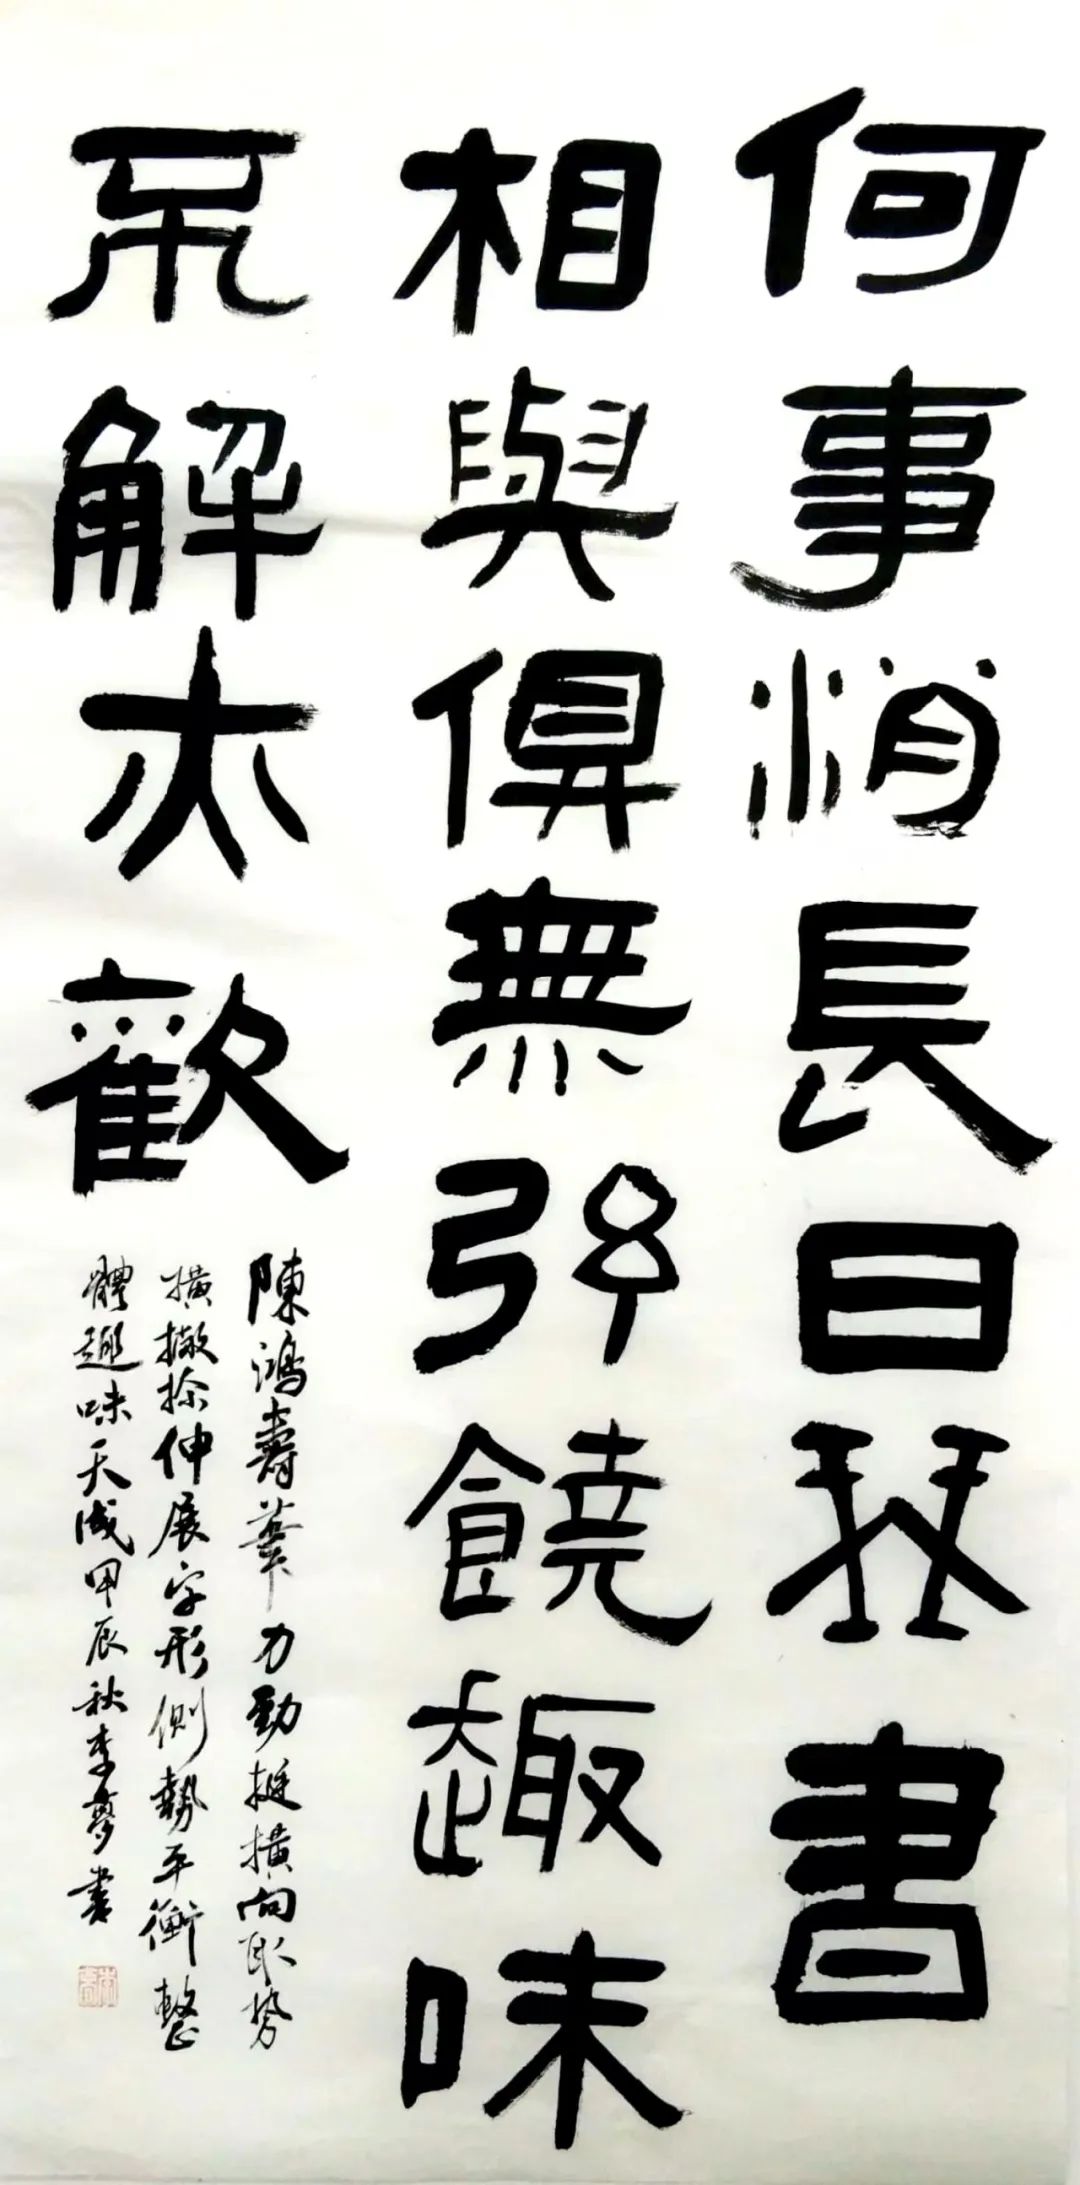 何事消長日琹書
相與俱無弦饒趣味
不解亦歡
陳鴻壽筆力勁挺橫向取势
橫撇捺伸展字形側勢平衡整
體趣味天成甲辰秋李夢書